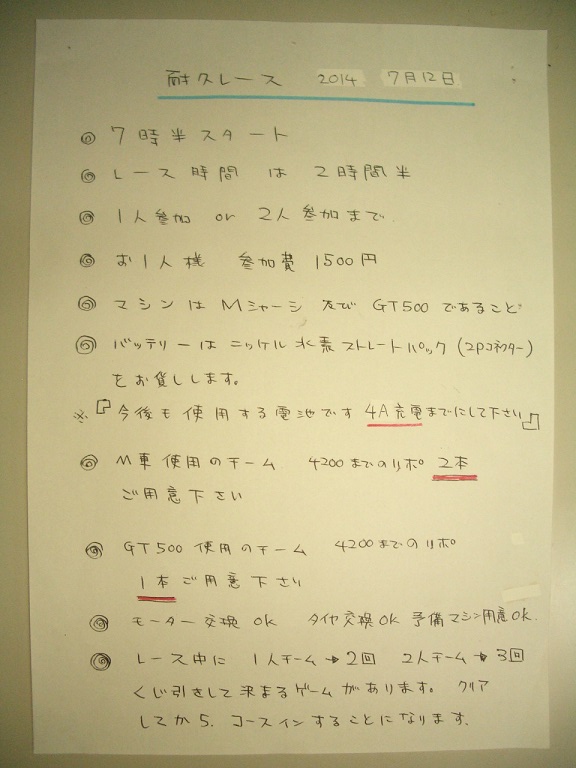 耐久レース 2014 7月12日
◎ 7時半スタート
◎ レース時間は2時間半
◎ 1人参加 or 2人参加まで
◎ お1人様 参加費 1500円
◎ マシンはMシャーシ 及び GT500 であること
◎ バッテリーはニッケル水素ストレートパック(2Pコネクター)
をお貸しします。
※『今後も使用する電池です 4A充電までにして下さい』
◎ M車使用のチーム 4200までのリポ 2本
ご用意下さい
◎ GT500 使用のチーム 4200までのリポ
1本ご用意下さい
◎ モーター交換OK タイヤ交換OK 予備マシン用意OK.
◎ レース中に 1人チーム→2回 2人チーム→3回
くじ引きして決まるゲームがあります。クリア
してから、コースインすることになります。